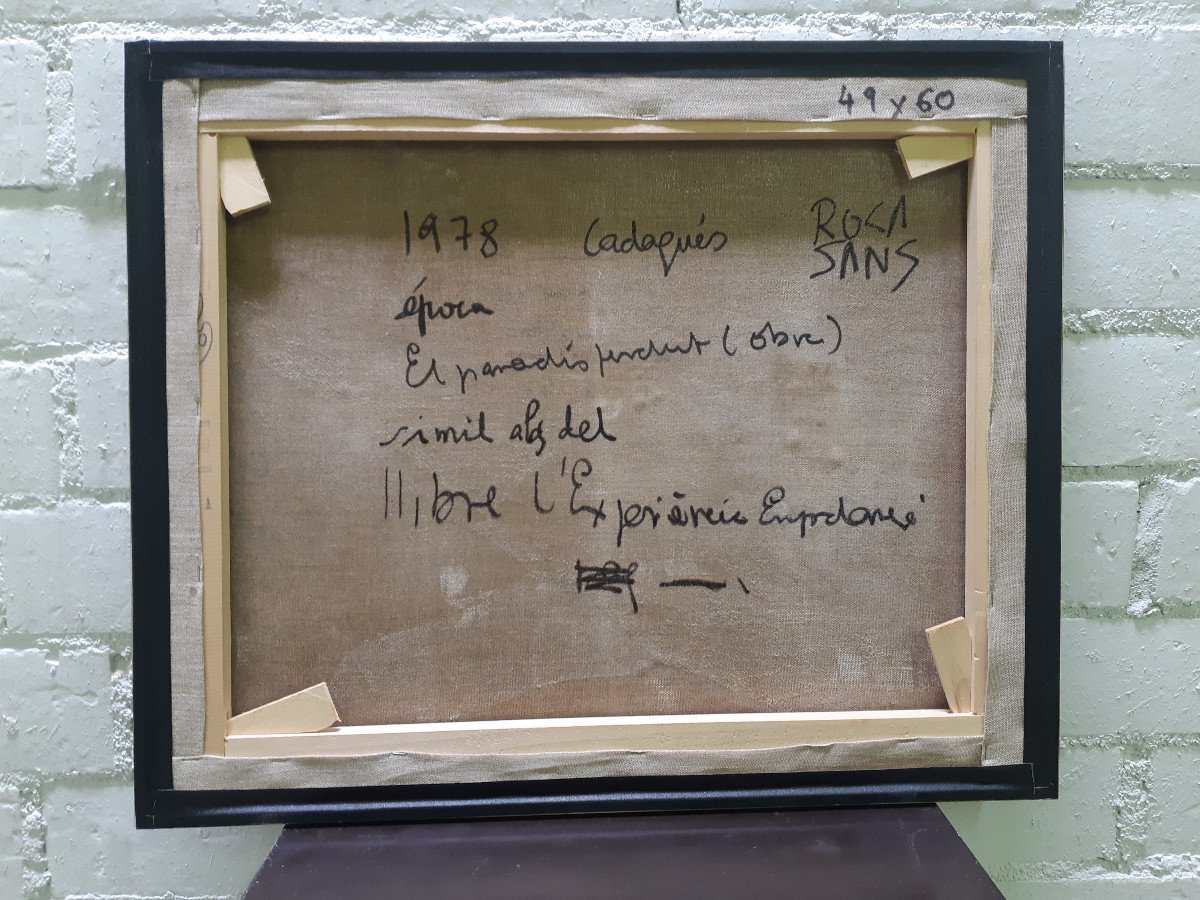 49 x 60
1978 Cadaqués ROCA
SANS
época
El paradís perdut (obra)
simil als del
llibre l'Experiència Empordanesa